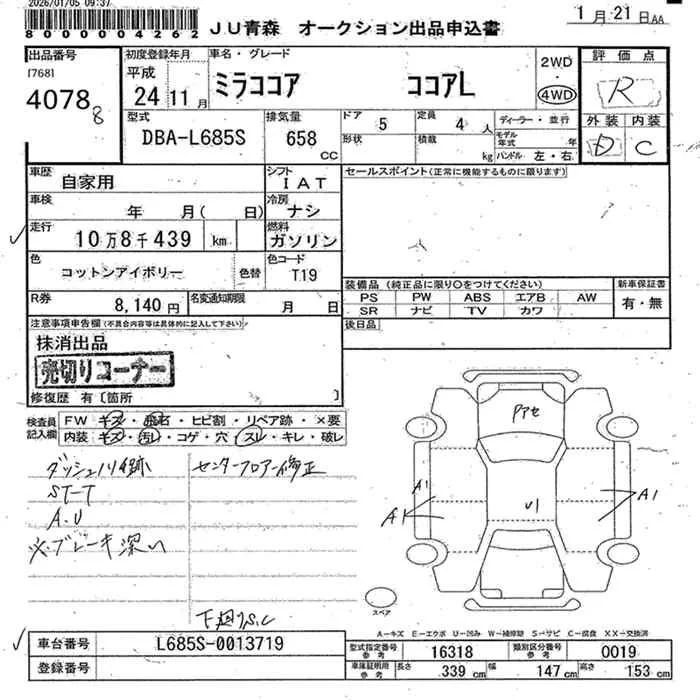 2026/01/05 09:37
00001004262
JU青森 オークション出品申込書
1月21日AA
出品番号
[768]
4078
8
初度登録年月
平成
24 11月
車名・グレード
ミラココア ココアL
2WD
4WD
評価点
R
外装 内装
D C
型式
DBA-L685S
排気量
658
CC
ドア
5
定員
4人
形状
積載
kg
ディーラー・並行
モデル年式 年
ハンドル 左・右
車歴
自家用
シフト
IAT
セールスポイント(正常に機能するものに限ります)
車検
年 月( 日)
冷房
ナシ
走行
10万8千439 km
燃料
ガソリン
色
コットンアイボリー
色替
色コード
T19
装備品(純正品に限り○をつけてください)
PS PW ABS エアB AW
SR ナビ TV カワ
新車保証書
有・無
R券
8,140円
名変通知期限
月 日
後日品
注意事項申告欄(不具合内容等は具体的に記入して下さい)
抹消出品
売切りコーナー
修復歴 有〔箇所 〕
検査員記入欄
FW キズ・飛石・ヒビ割・リペア跡・×要
内装 キズ・汚レ・コゲ・穴・スレ・キレ・破レ
ダッシュノリ跡
センターフロアー修正
ST-T
A.U
※ブレーキ深い
下廻りS.C
Pアセ
A1
A1
U1
A1
スペア
A-キズ E-エクボ U-凹み W-補修跡 S-サビ C-腐食 XX-交換済
車台番号
L685S-0013719
登録番号
型式指定番号
参考
16318
類別区分番号
参考
0019
車庫証明用
参考
長さ
339 cm
幅
147 cm
高さ
153 cm